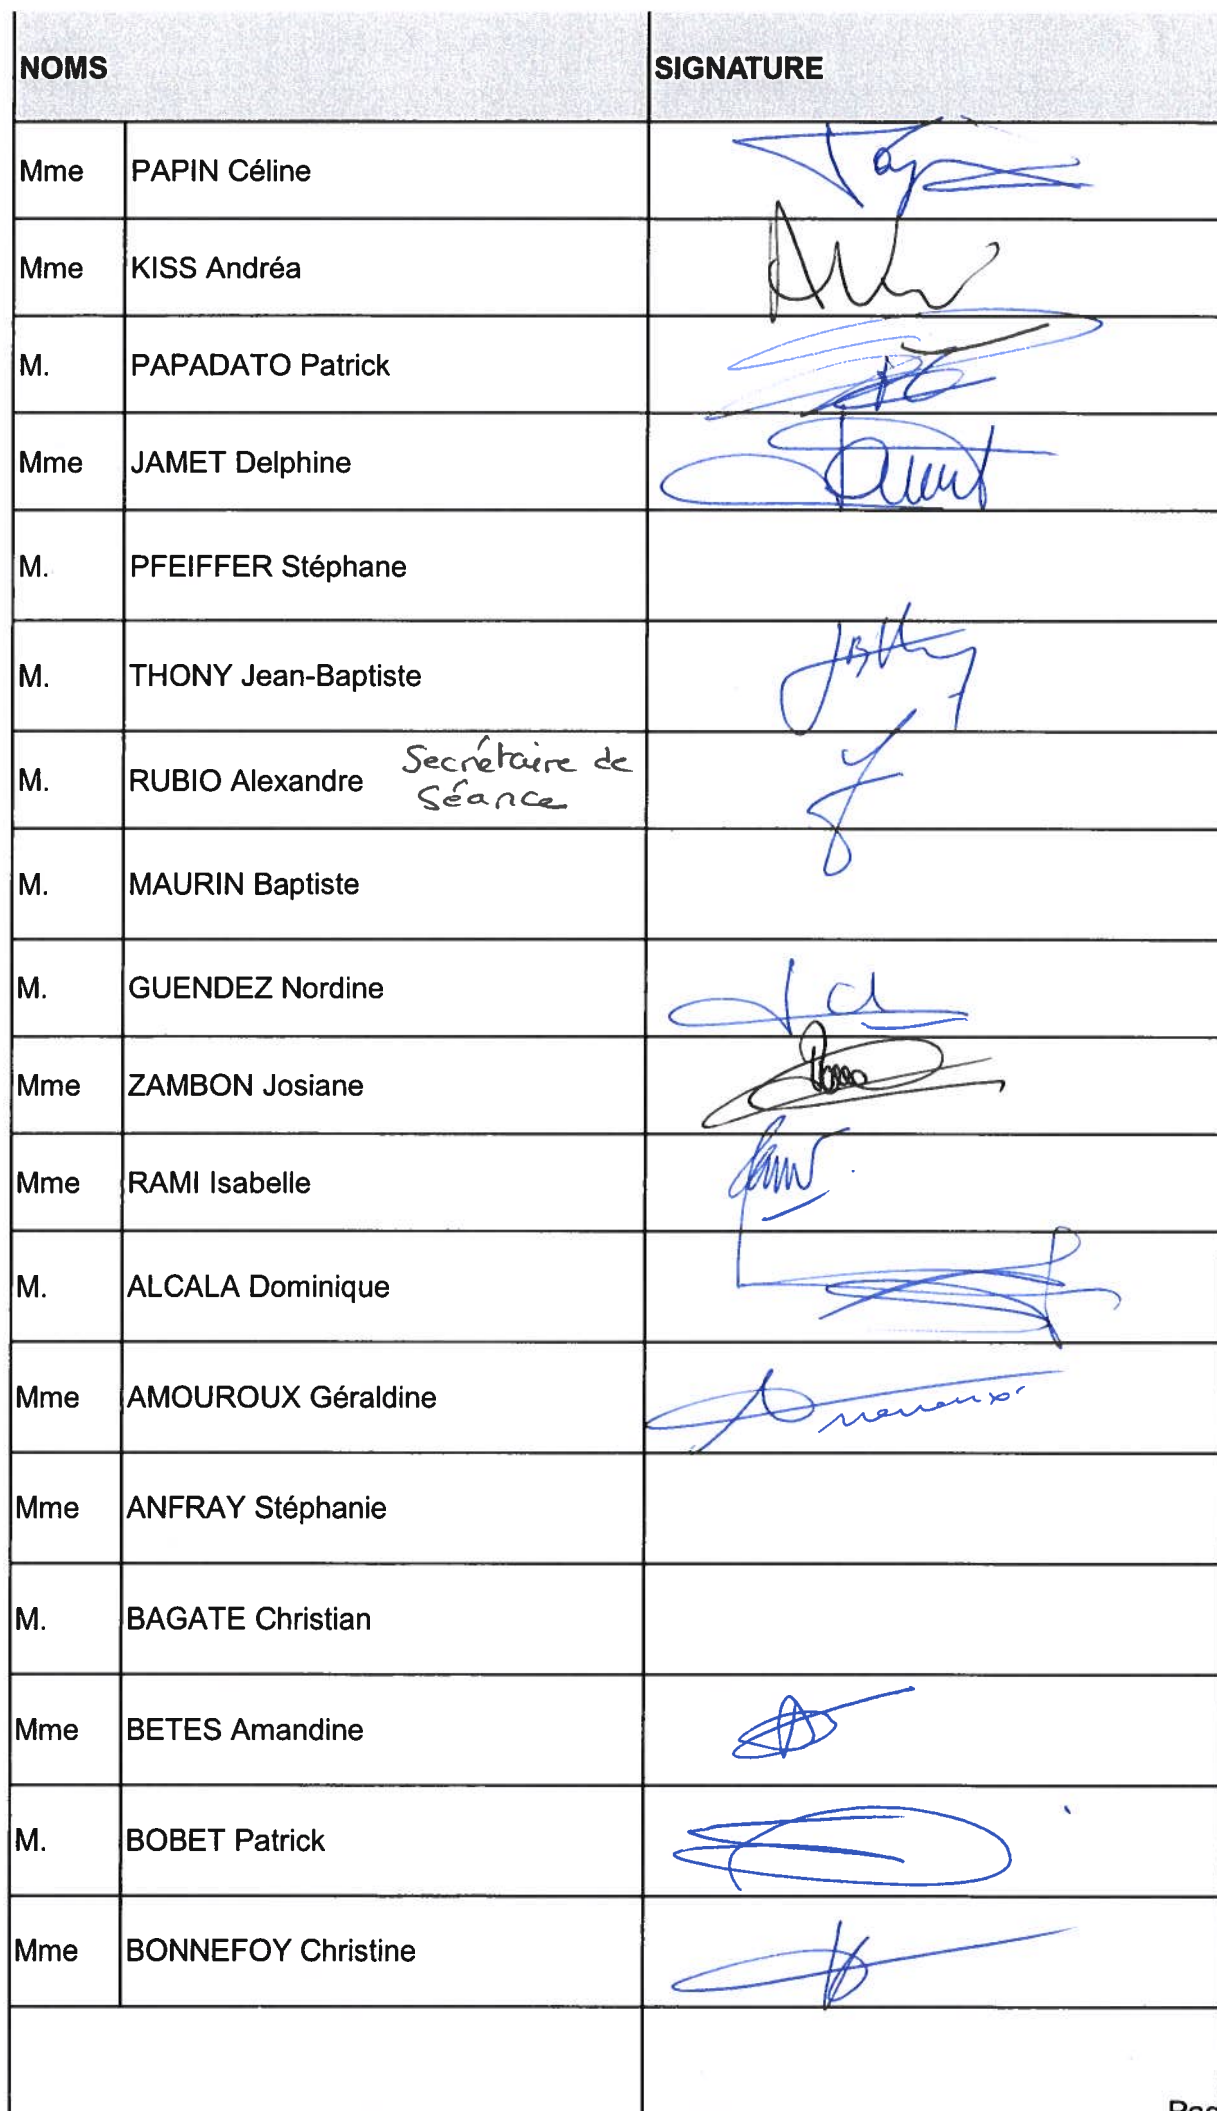 NOMS SIGNATURE
Mme PAPIN Céline
Mme KISS Andréa
M. PAPADATO Patrick
Mme JAMET Delphine
M. PFEIFFER Stéphane
M. THONY Jean-Baptiste
M. RUBIO Alexandre Secrétaire de
Séance
M. MAURIN Baptiste
M. GUENDEZ Nordine
Mme ZAMBON Josiane
Mme RAMI Isabelle
M. ALCALA Dominique
Mme AMOUROUX Géraldine
Mme ANFRAY Stéphanie
M. BAGATE Christian
Mme BETES Amandine
M. BOBET Patrick
Mme BONNEFOY Christine